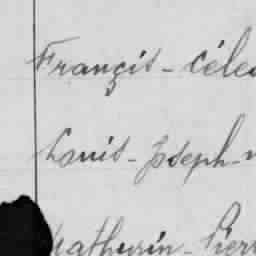 Françis - Céle
Louis - Joseph -
Mathurin - Pierr